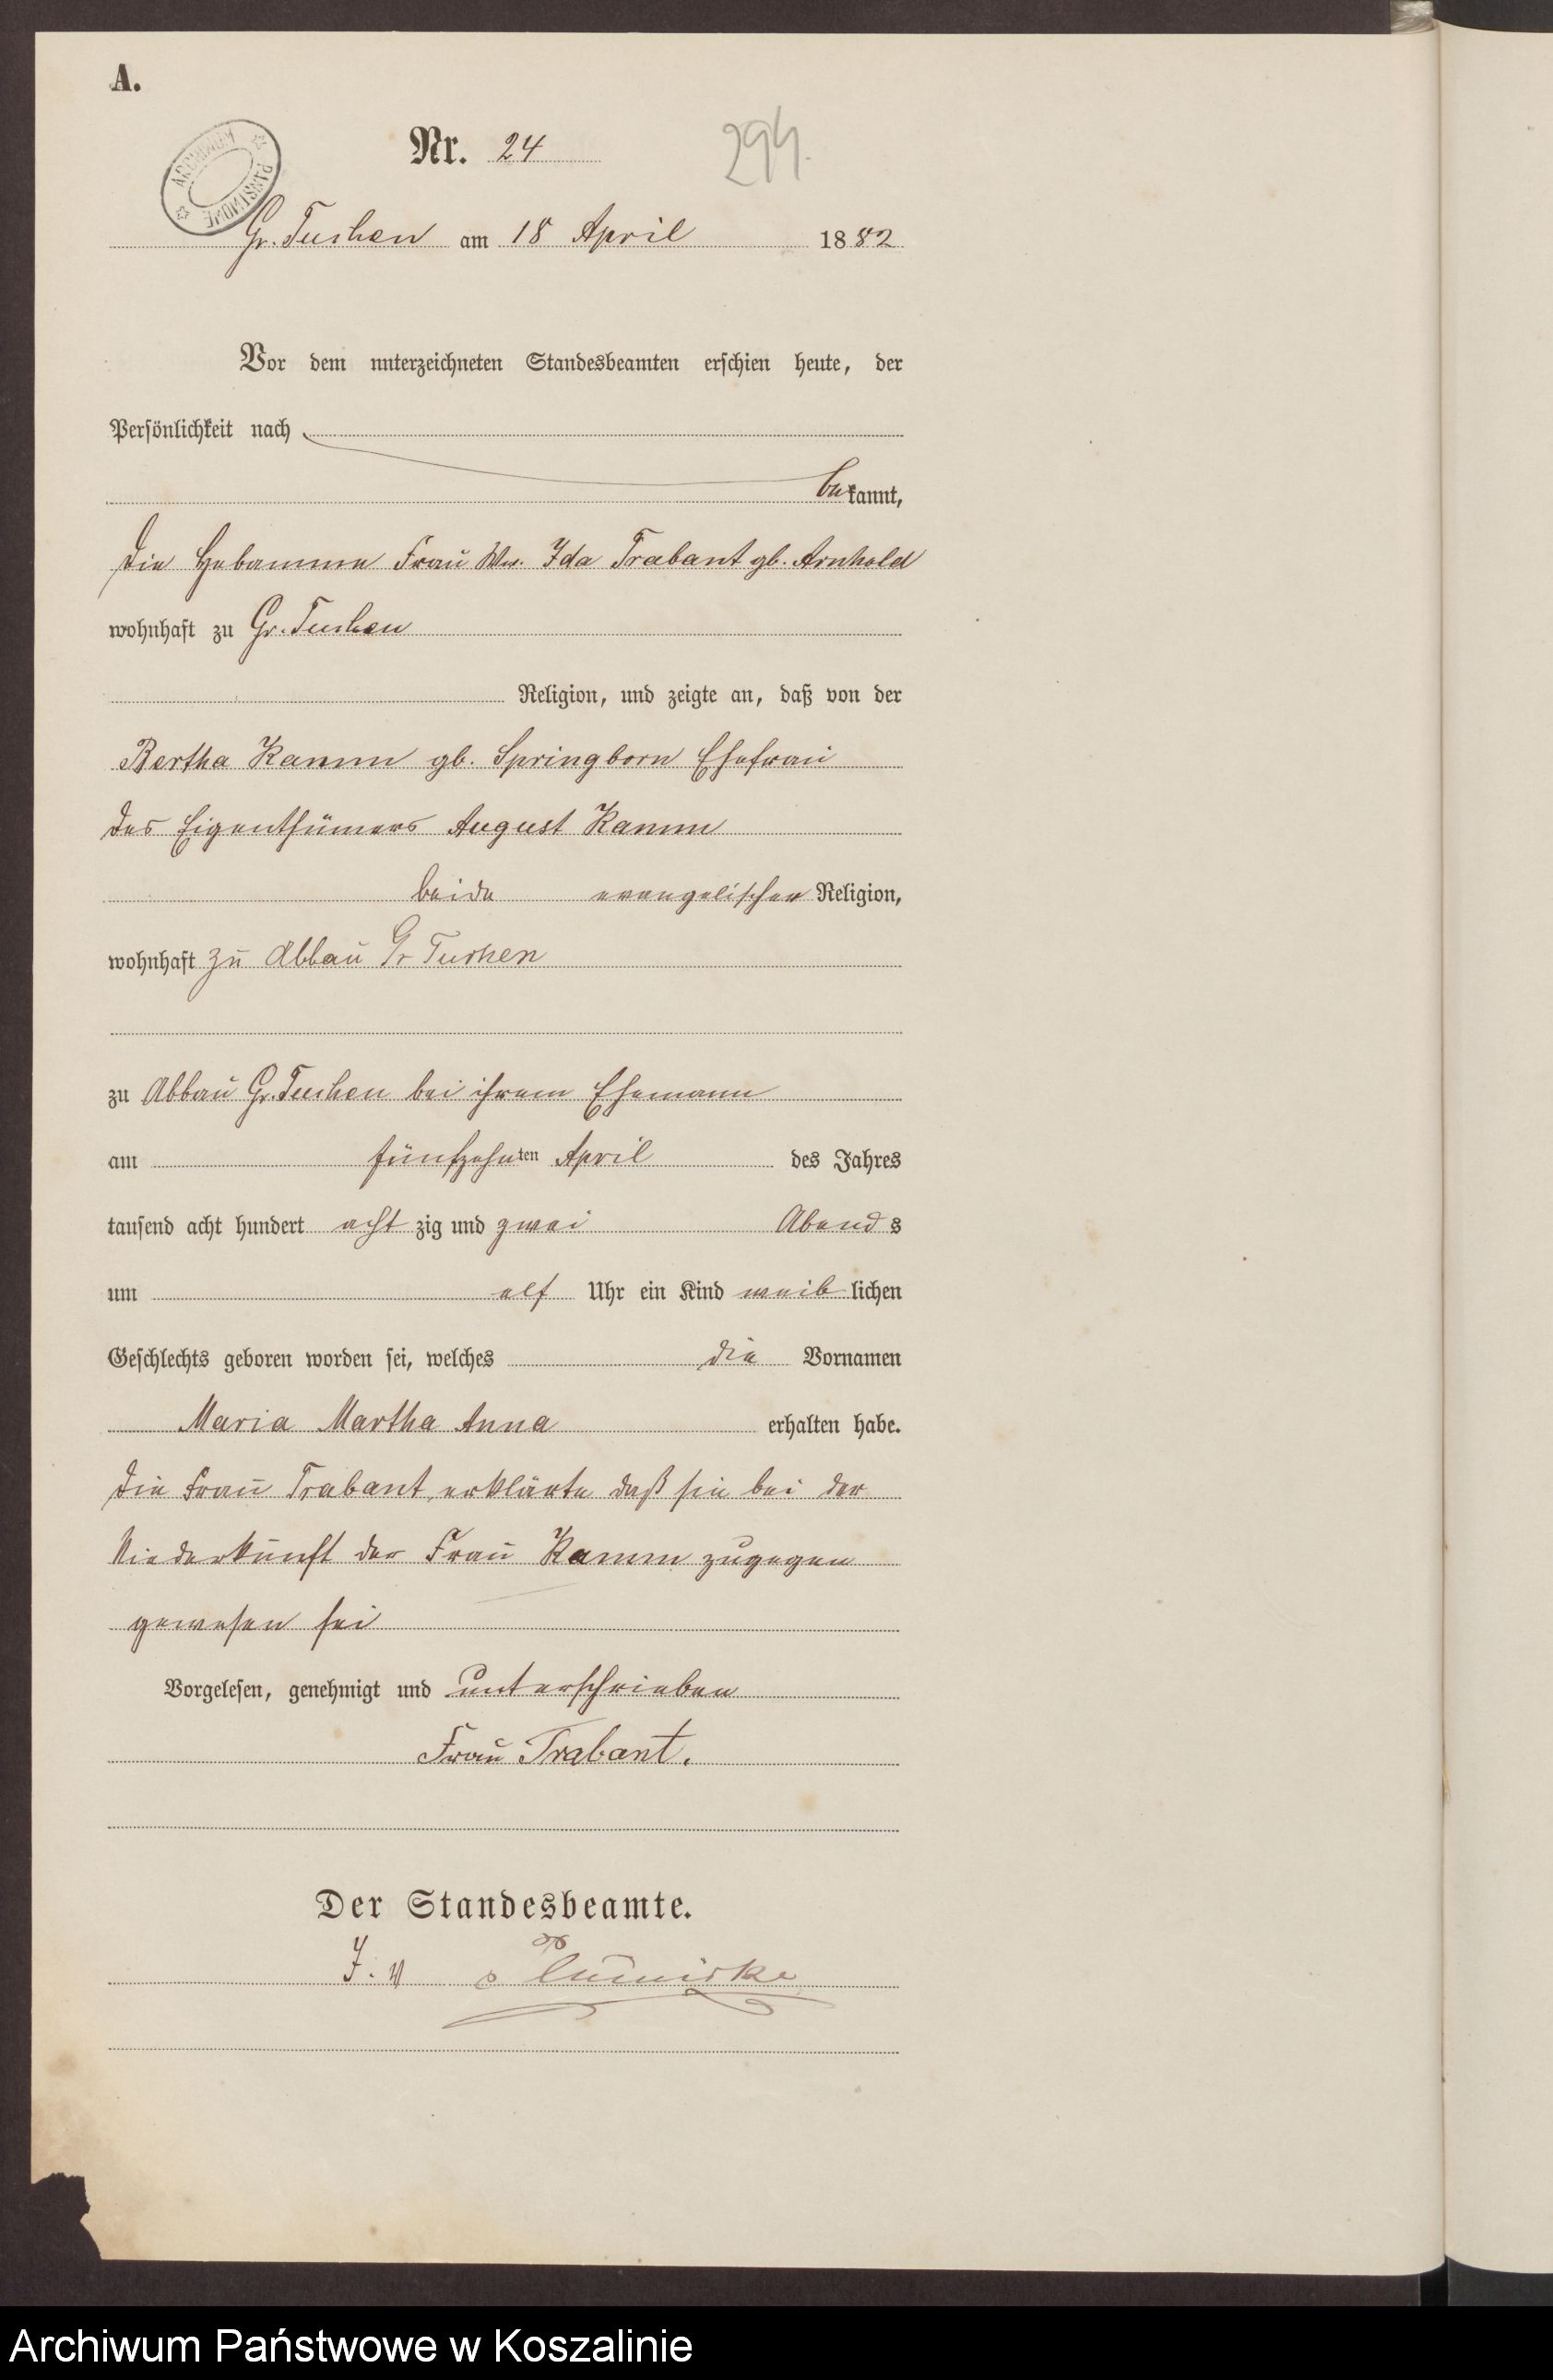 A.
ARCHIWUM PAŃSTWOWE
Nr. 24
294.
Gr. Tuchen am 18 April 1882
Vor dem unterzeichneten Standesbeamten erschien heute, der
Persönlichkeit nach
bekannt,
die Hebamme Frau Ww. Ida Trabant gb. Arnhold
wohnhaft zu Gr. Tuchen
Religion, und zeigte an, daß von der
Bertha Kamm gb. Springborn Ehefrau
des Eigenthümers August Kamm
beide evangelischer Religion,
wohnhaft zu Abbau Gr Tuchen
zu Abbau Gr. Tuchen bei ihrem Ehemann
am fünfzehnten April des Jahres
tausend acht hundert acht zig und zwei Abends
um elf Uhr ein Kind weiblichen
Geschlechts geboren worden sei, welches die Vornamen
Maria Martha Anna erhalten habe.
Die Frau Trabant erklärte daß sie bei der
Niederkunft der Frau Kamm zugegen
gewesen sei
Vorgelesen, genehmigt und unterschrieben
Frau Trabant.
Der Standesbeamte.
J. V
Archiwum Państwowe w Koszalinie